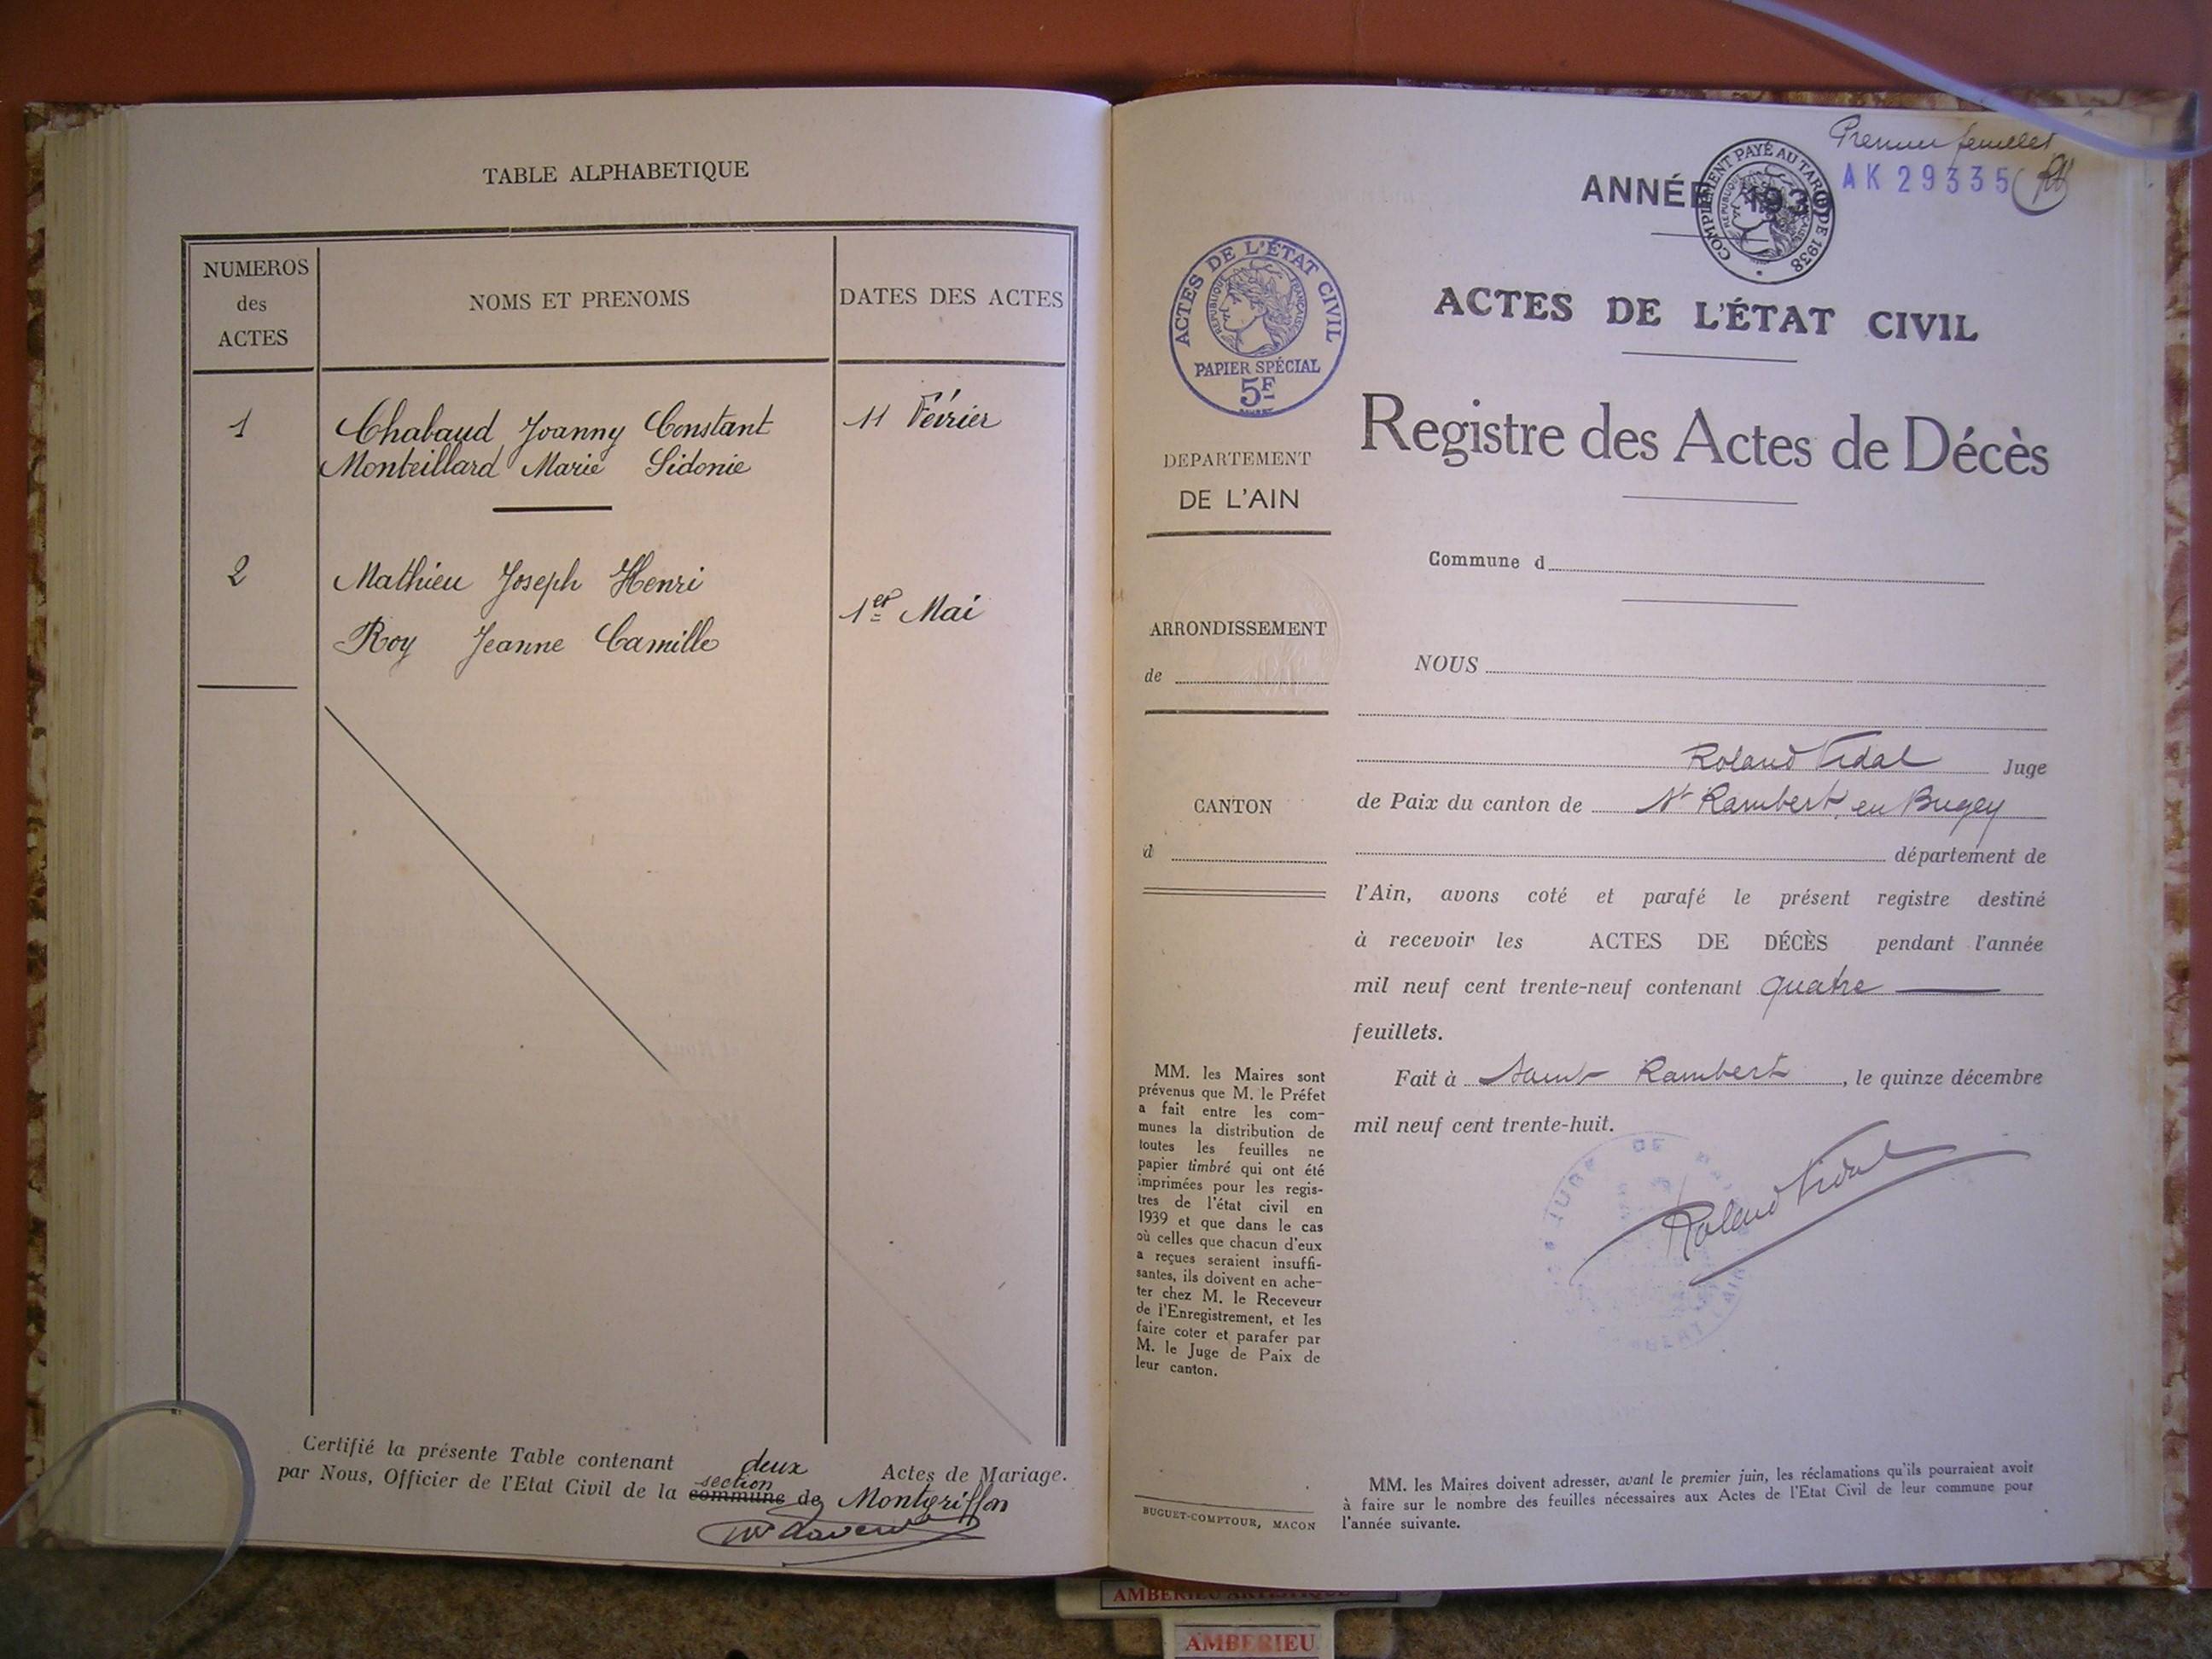 TABLE ALPHABETIQUE
NUMEROS
des
ACTES
NOMS ET PRENOMS
DATES DES ACTES
1
Chabaud Joanny Constant
11 Février
Monteillard Marie Sidonie
2
Mathieu Joseph Henri
1er Mai
Roy Jeanne Camille
Certifié la présente Table contenant deux Actes de Mariage.
section
par Nous, Officier de l'Etat Civil de la commune de Montgriffon
Premier feuillet
AK 29335
ANNÉE 193
COMPLÉMENT PAYÉ AU TARIF DE 1938
ACTES DE L'ÉTAT CIVIL
REPUBLIQUE FRANÇAISE
PAPIER SPÉCIAL
5F
ACTES DE L'ÉTAT CIVIL
Registre des Actes de Décès
DEPARTEMENT
DE L'AIN
ARRONDISSEMENT
de
CANTON
d
MM. les Maires sont
prévenus que M. le Préfet
a fait entre les com-
munes la distribution de
toutes les feuilles ne
papier timbré qui ont été
imprimées pour les regis-
tres de l'état civil en
1939 et que dans le cas
où celles que chacun d'eux
a reçues seraient insuffi-
santes, ils doivent en ache-
ter chez M. le Receveur
de l'Enregistrement, et les
faire coter et parafer par
M. le Juge de Paix de
leur canton.
BUGUET-COMPTOUR, MACON
Commune d
NOUS
Roland Vidal Juge
de Paix du canton de St Rambert en Bugey
département de
l'Ain, avons coté et parafé le présent registre destiné
à recevoir les ACTES DE DÉCÈS pendant l'année
mil neuf cent trente-neuf contenant quatre
feuillets.
Fait à Saint Rambert, le quinze décembre
mil neuf cent trente-huit.
Roland Vidal
MM. les Maires doivent adresser, avant le premier juin, les réclamations qu'ils pourraient avoir
à faire sur le nombre des feuilles nécessaires aux Actes de l'Etat Civil de leur commune pour
l'année suivante.
AMBERIEU ARTISTIQUE
AMBERIEU